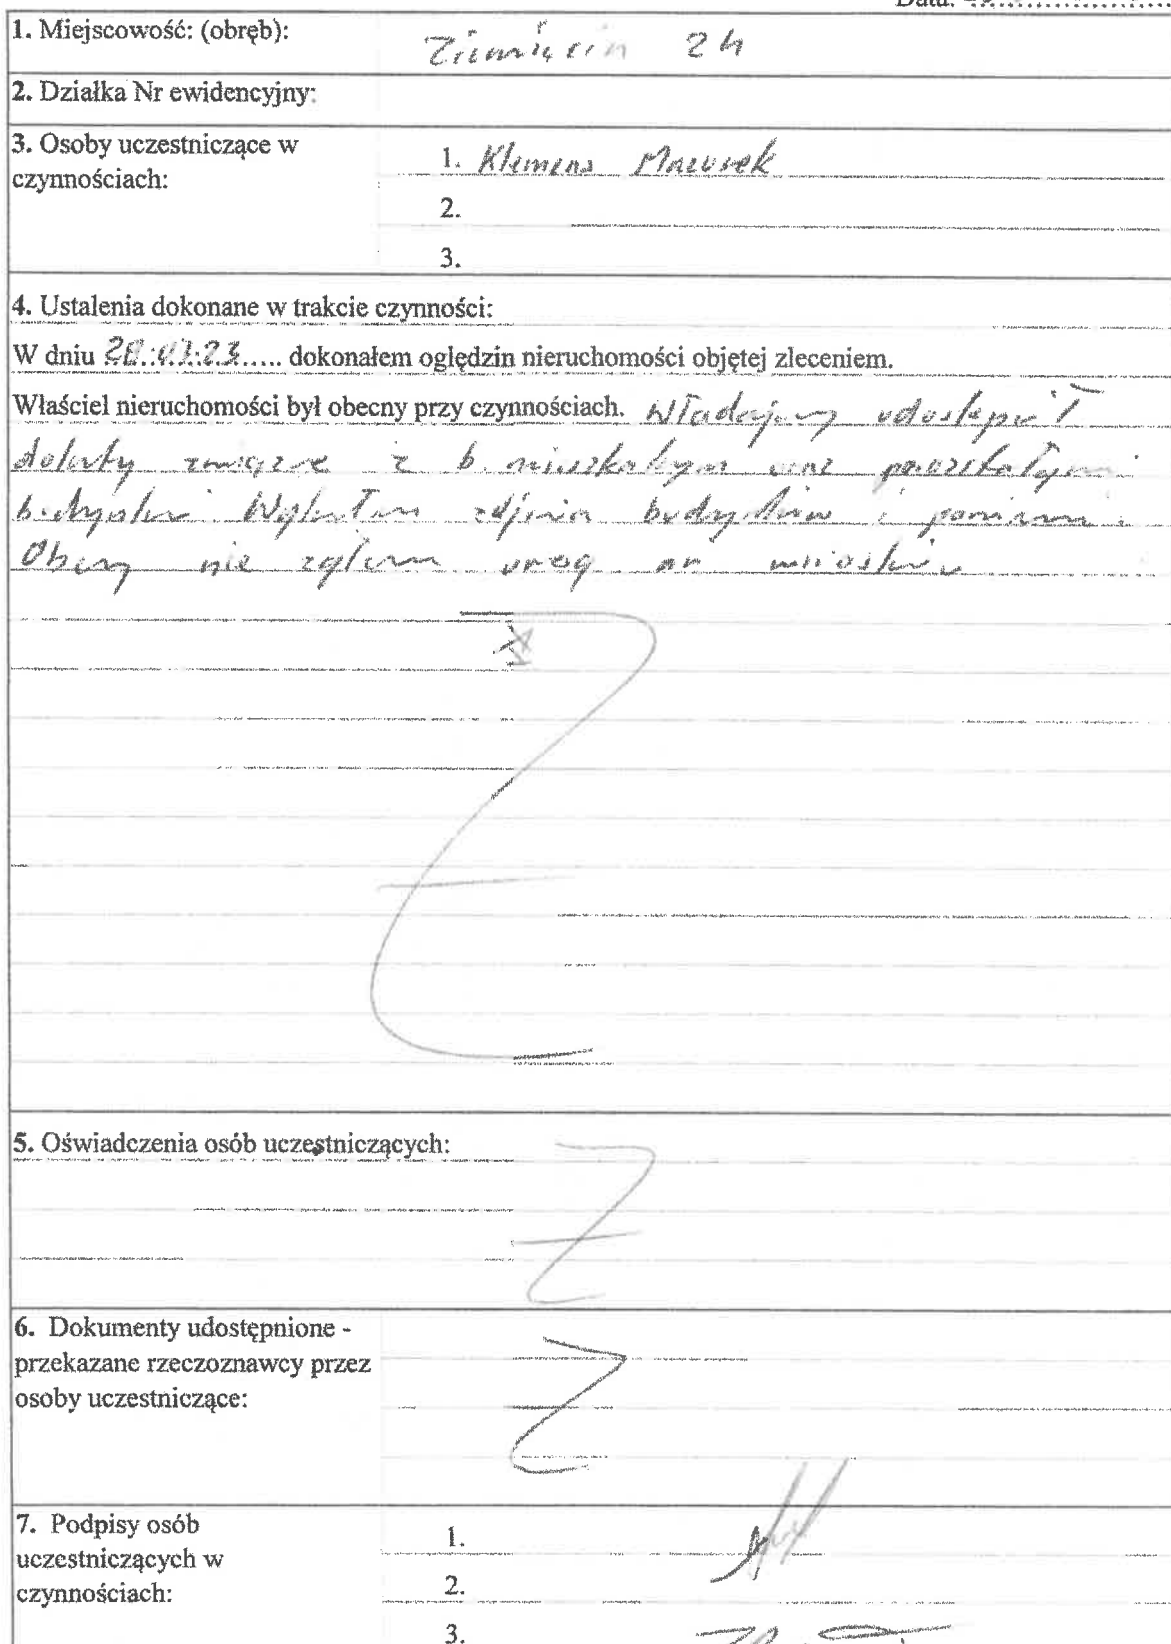 Data:
1. Miejscowość: (obręb):
Ziemięcin 24
2. Działka Nr ewidencyjny:
3. Osoby uczestniczące w
czynnościach:
1. Klemens Mazurek
2.
3.
4. Ustalenia dokonane w trakcie czynności:
W dniu 28.03.23..... dokonałem oględzin nieruchomości objętej zleceniem.
Właściel nieruchomości był obecny przy czynnościach. Władający udostępnił
z b. mieszkalnym oraz pozostałymi
zdjęcia budynków i
Obecny nie uwag
5. Oświadczenia osób uczestniczących:
6. Dokumenty udostępnione -
przekazane rzeczoznawcy przez
osoby uczestniczące:
7. Podpisy osób
uczestniczących w
czynnościach:
1.
2.
3.